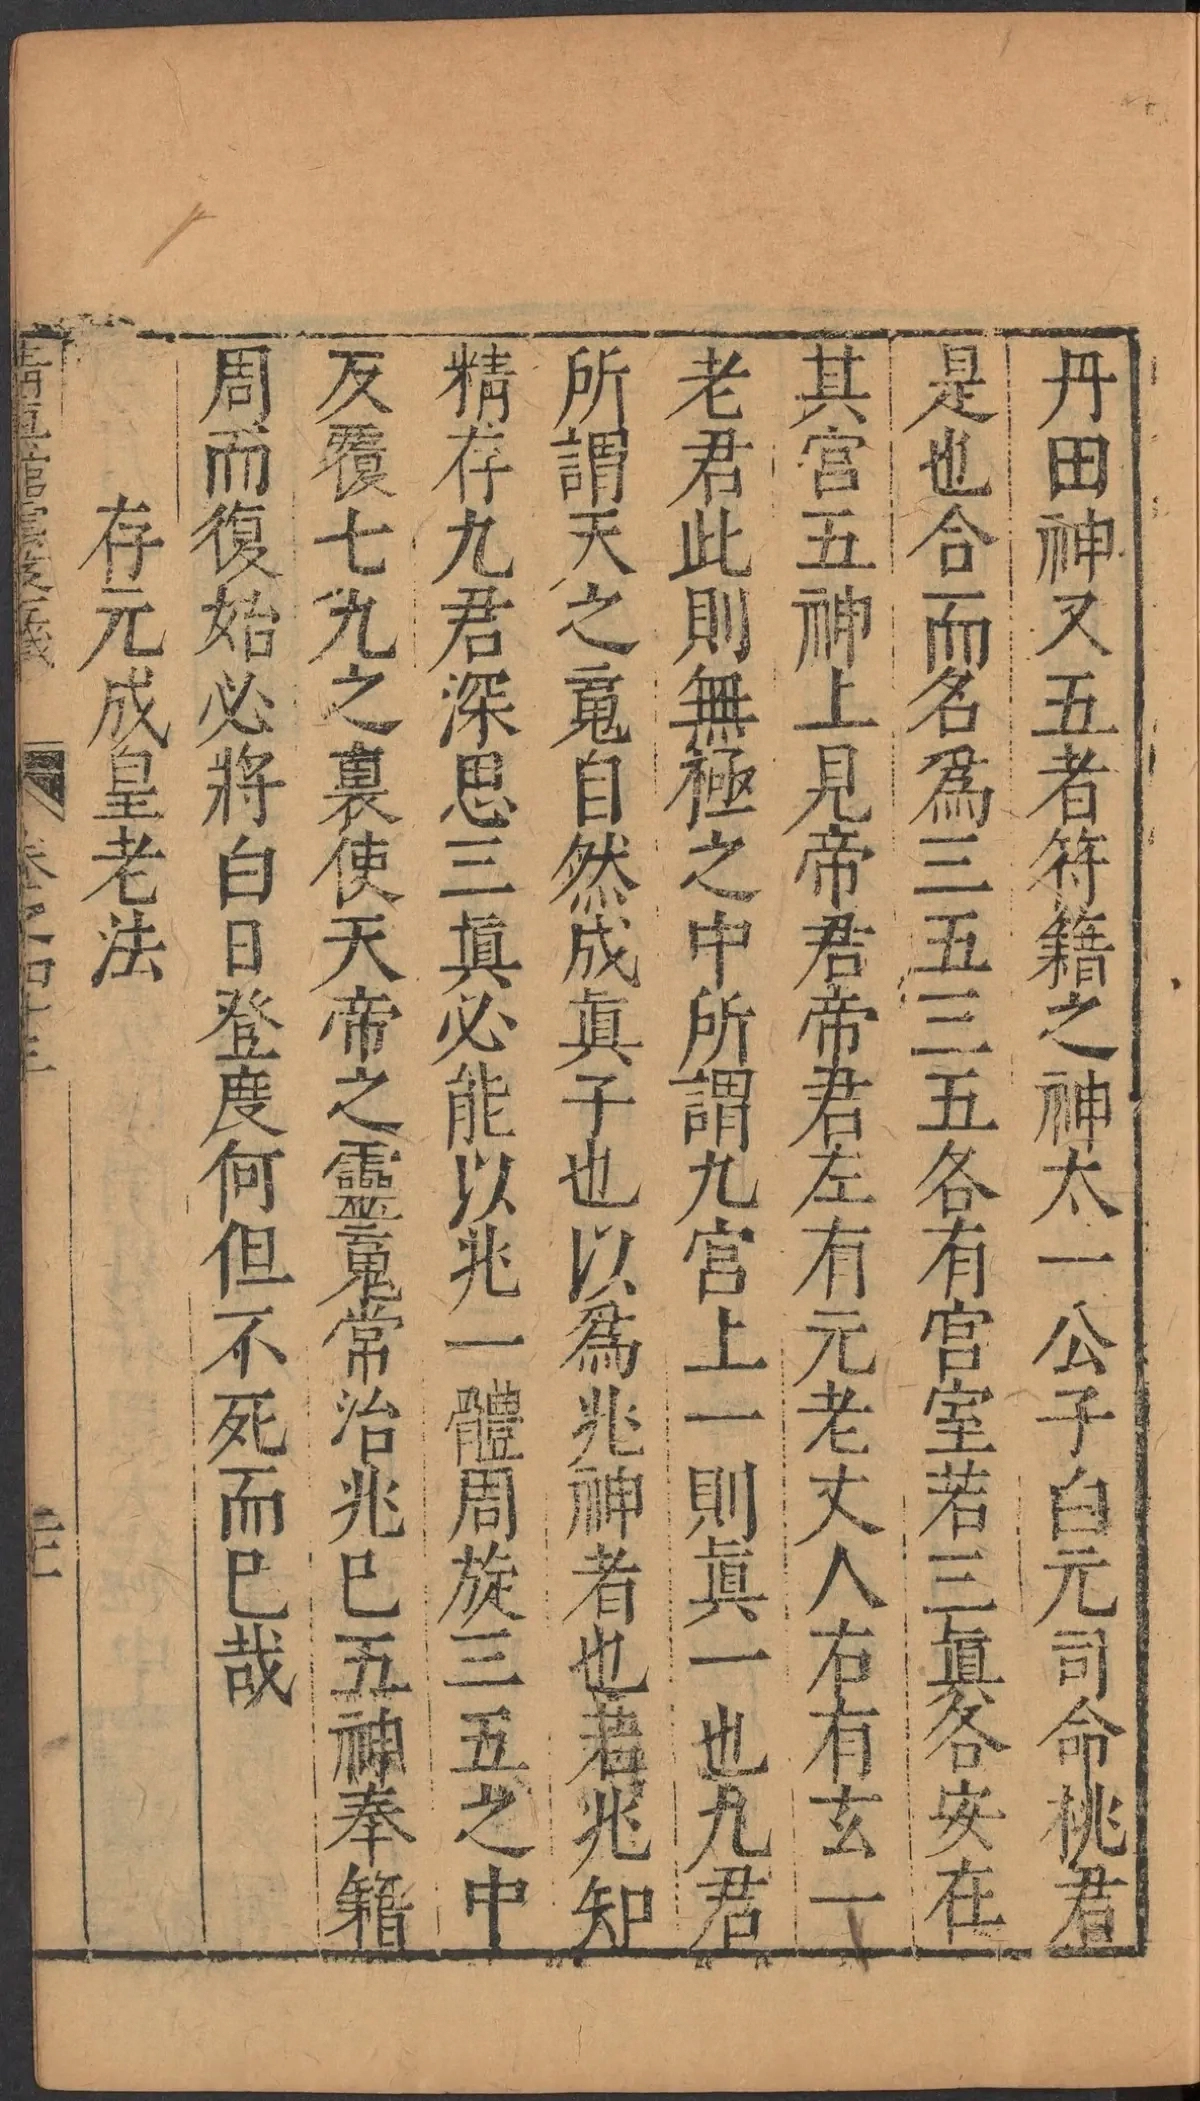 丹田神又五者符籍之神太一公子白元司命桃君
是也合而名爲三五三五各有宮室若三眞各安在
其宮五神上見帝君帝君左有元老丈人右有玄一
老君此則無極之中所謂九宮上一則眞一也九君
所謂天之䰟自然成眞子也以爲兆神者也若兆知
精存九君深思三眞必能以兆一體周旋三五之中
反覆七九之裏使天帝之靈䰟常治兆巳五神奉籍
周而復始必將白日登度何但不死而巳哉
存元成皇老法